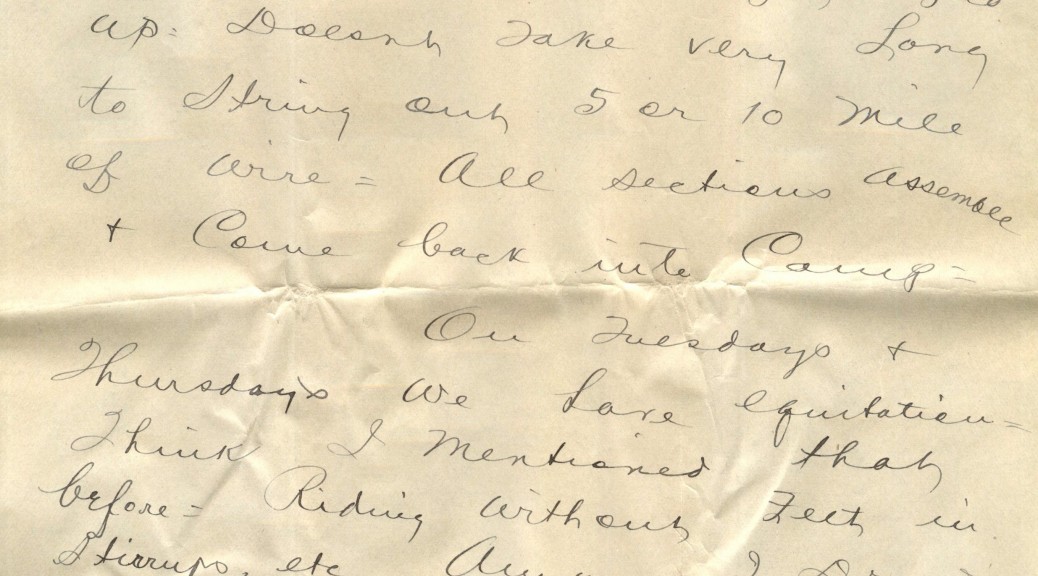 up: Doesnt Take very Long
to String out 5 or 10 Mile
of Wire = All sections Assemble
+ Come back into Camp =
On Tuesdays +
Thursdays We have equitation =
Think I Mentioned that
before = Riding Without Feet in
Stirrups, etc I